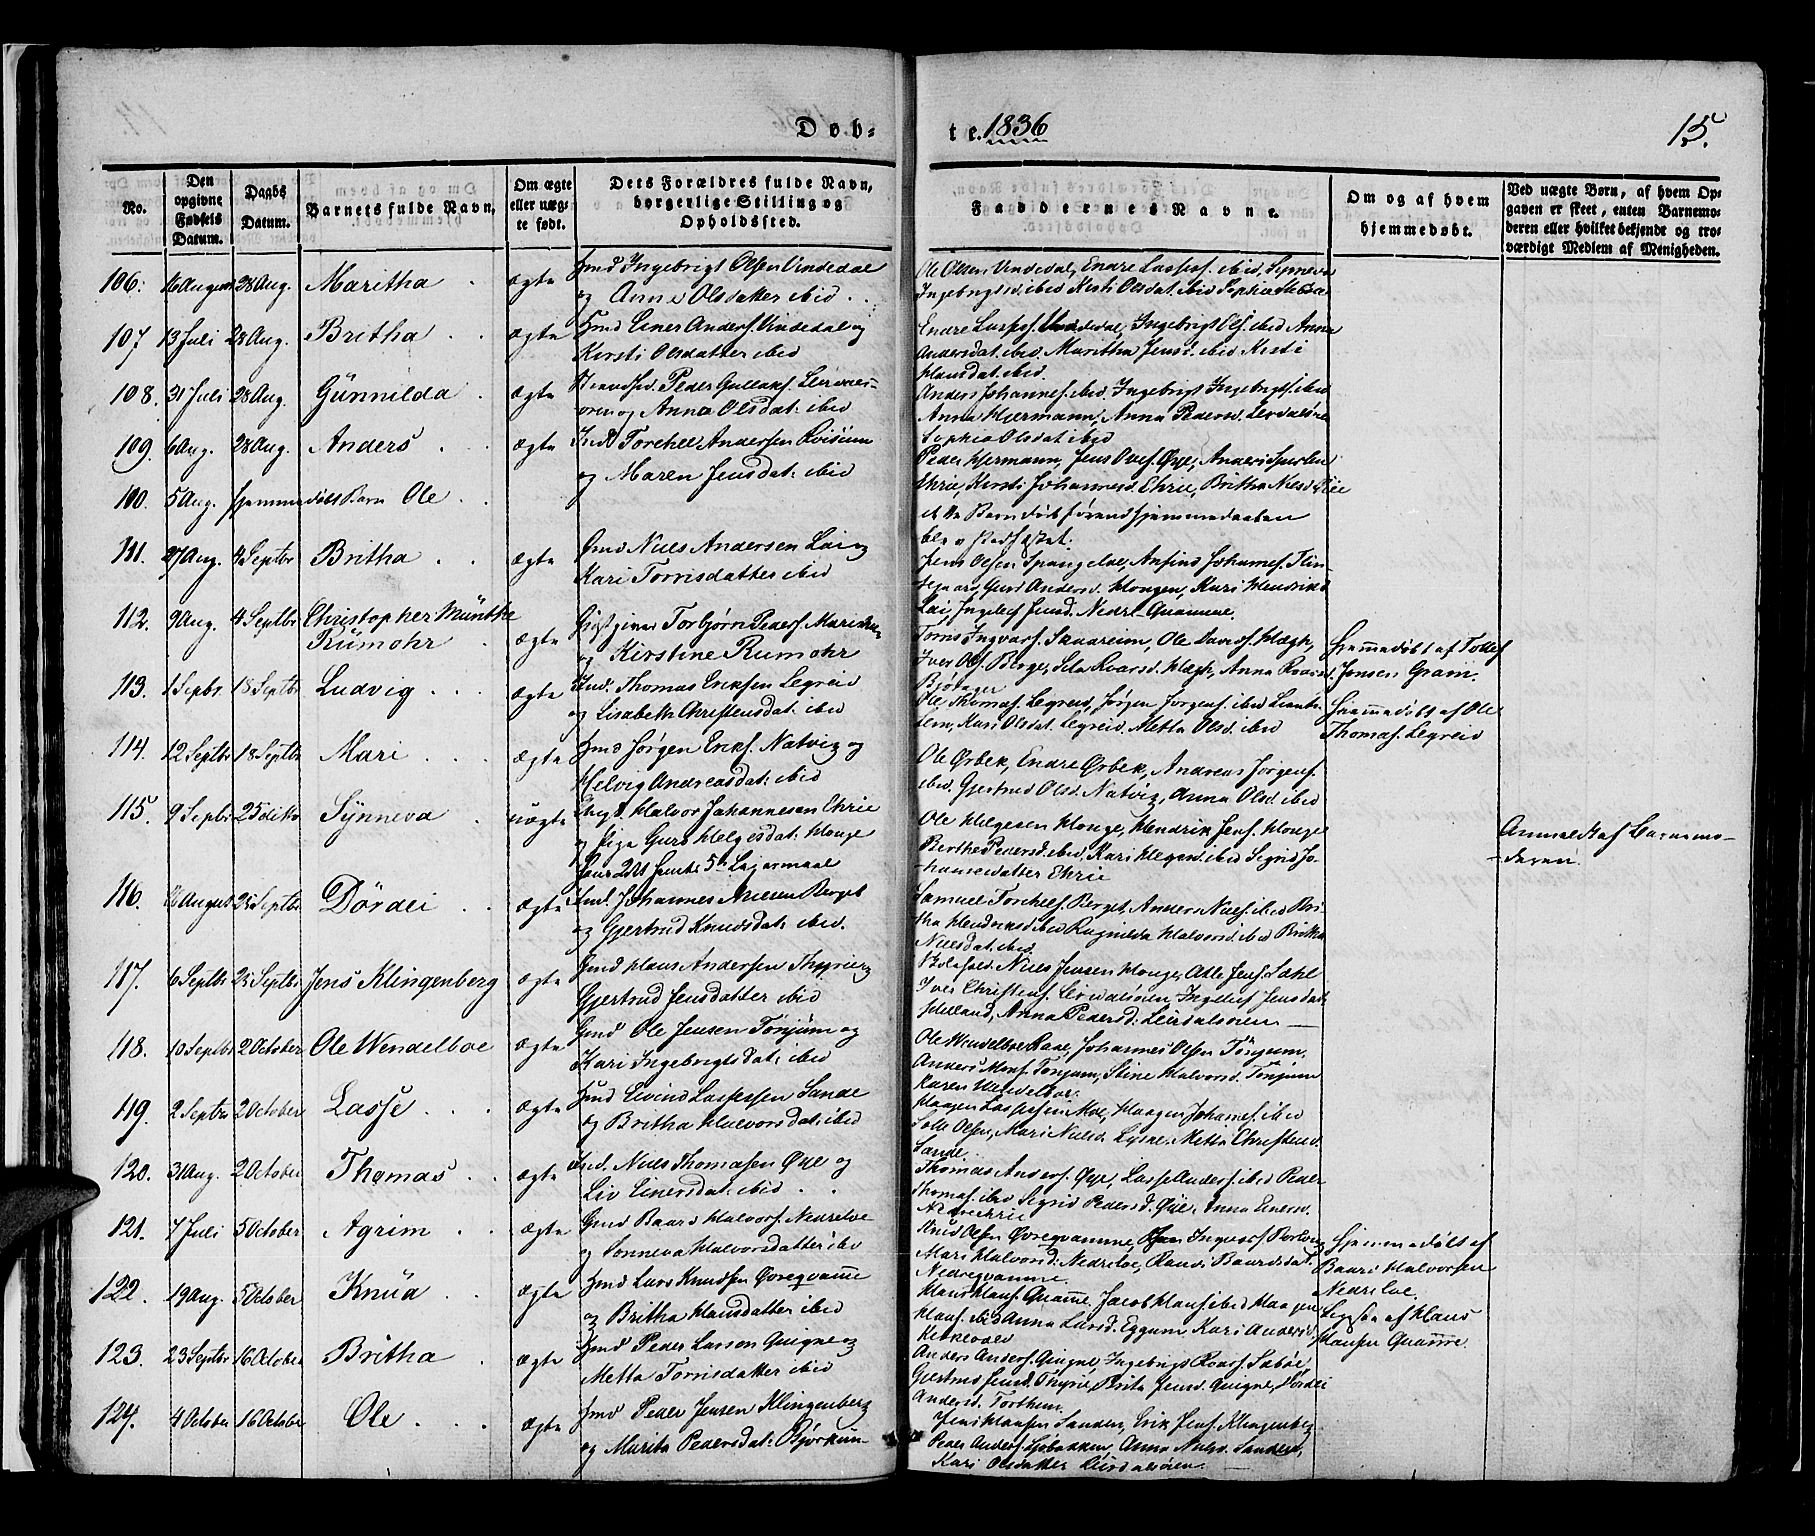 Døb-
te. 1836
15.
No.
Den opgivne Fødsels Datum.
Daabs Datum.
Barnets fulde Navn.
Om ægte eller uægte født.
Dets Forældres fulde Navn, borgerlige Stilling og Opholdssted.
Faddernes Navne.
Om og af hvem hjemmedøbt.
Ved uægte Børn, af hvem Opgaven er skeet, enten Barnemoderen eller hvilket bekjendt og troværdigt Medlem af Menigheden.
106. 16 August 28 Aug. Maritha ægte Gmd Ingebrigt Olsen Vindedal
og Anne Olsdatter ibid
Ole Olsen Vindedal, Endre Lasses. ibid, Synneva
Ingebrigtsd. ibid Kersti Olsdat. ibid Sophia
107. 13 Juli 28 Aug. Britha ægte Gmd Einer Anders. Vindedal og
Kersti Olsdatter ibid
Endre Lasses. Vindedal, Ingebrigt Ols. ibid Anna
Andersdat. ibid. Maritha Jensd. ibid Kersti
Hansdat. ibid.
108. 31 Juli 28 Aug. Gunnilda ægte Strandsid. Peder Gullaks. Leirdals-
øren og Anna Olsdat. ibid
Anders Johannes. ibid, Ingebrigt Ingebrigts. ibid
Anna Hjermann, Anna Pedersd. Leirdalsøre
Sophia Olsdat. ibid
109. 6 Aug. 28 Aug. Anders ægte Ind. Torchel Andersen
og Maren Jensdat. ibid
Peder Hjermann, Jens Oves. Øye, Anders
Ehrie, Kersti Johannesd. Ehrie, Britha Nielsd.
110. 5 Aug. hjemmedøbt Barn Ole
dette Barn døde førend hjemmedaaben
blev stadfæstet.
111. 27 Aug. 4 Septbr Britha ægte Gmd Niels Andersen Lai og
Kari Torrisdatter ibid
Jens Olsen Spangeloe, Ansind Johannes.
Guro Andersd. Hougen, Kari Hendriksd.
Lai, Ingeleif Jensd. Nedre Quamme.
112. 9 Aug. 4 Septbr Christopher Münthe
Rümohr ægte Gjestgiver Torbjørn Peders.
og Kirstine Rumohr
Torris Ingvars. Skaareim, Ole Davids. Hægh,
Iver Ols. Berge, Sila Ivarsd. Hægh, Anna
Hjemmedøbt af Tollef
Jensen Gram.
113. 1 Sepbr. 18 Septbr Ludvig ægte Ind. Thomas Eriksen Legreid
og Lisabeth Christensdat. ibid
Ole Thomas. Legreid, Jørgen Jørgens. ibid
Kari Olsdat. Legreid. Metta Olsd. ibid
Hjemmedøbt af Ole
Thomas. Legreid
114. 12 Septbr 18 Septbr Mari ægte Gmd Jørgen Eriks. Natvig og
Helvig Andreasdat. ibid
Ole Ørbek, Endre Ørbek, Andreas Jørgens.
ibid, Gjertrud Olsd. Natvig, Anna Olsd. ibid
115. 9 Septbr 25 ditto Synneva uægte Ungk. Halvor Johannesen Ehrie
og Pige Guro Helgesdat. Houge
Ole Helgesen Houge, Hendrik Jens. Houge
Berthe Pedersd. ibid, Kari Helgesd. ibid Sigrid Jo-
hannesdatter Ehrie
Anmeldt af Barnemo-
deren.
116. 16 August 25 Septbr Dørdei ægte Ind. Johannes Nielsen Berget
og Gjertrud Knudsdat. ibid.
Samuel Torchels. Berget, Anders Niels. ibid Bri-
tha Hendriksd. ibid Ragnilda Halvorsd. ibid Britha
Nielsdat. ibid
117. 6 Septbr 25 Septbr Jens Klingenberg ægte Gmd Hans Andersen Thyrie og
Gjertrud Jensdatter ibid
Niels Jensen Houge, Atle Jens.
Iver Christens. Leirdalsøren, Ingeleif Jensdat.
Helland, Anna Pedersd. Leirdalsøren
118. 10 Septbr 2 October Ole Wendelboe ægte Gmd Ole Jensen Tønjum og
Kari Ingebrigtsdat. ibid
Ole Wendelboe, Johannes Olsen Tønjum.
Anders Mons. Tønjum, Stine Halvorsd. Tønjum
Karen Wendelboe.
119. 2 Septbr 2 October Lasse ægte Gmd Eivind Lassesen Sande
og Britha Halvorsdat. ibid
Haagen Lassesen Moe, Haagen Johannes. ibid
Olsen, Mari Nielsd. Lysne, Metta Christensd.
Sande.
120. 31 Aug. 2 October Thomas ægte Ind. Niels Thomasen Øye og
Liv Einersdat. ibid
Thomas Anders. Øye, Lasse Anders. ibid Peder
Thomas. ibid Sigrid Pedersd. Øye, Anna Einersd.
121. 7 Juli 5 October Agrim ægte Gmd Baard Halvors. Nedreloe
og Sønneva Halvorsdatter ibid
Knud Olsen Øvreqvamme, Ingvars.
Mari Halvorsd. Nedreloe, Randi Baardsdat.
Nedreqvamme.
Hjemmedøbt af
Baard Halvorsen
Nedreloe.
122. 19 Aug. 5 October Knud ægte Gmd Lars Knudsen Øvreqvamme
og Britha Hansdatter ibid
Hans Hans. Quamme. Jacob Hans. ibid Haagen
Hans. ibid Anna Larsd. Eggum, Kari Andersd.
Kirkevold
Ligesaa af Hans
Hansen Quamme.
123. 23 Septbr 16 October Britha ægte Gmd Peder Larsen Quigne og
Metta Torrisdatter ibid
Anders Anders. Quigne, Ingebrigt Ivars. Sæbøe,
Gjertrud Jensd. Thyrie, Brita Jensd. Quigne, Dørdei
Andersd. Torthum.
124. 4 October 16 October Ole ægte Gmd Peder Jensen Klingenberg
og Marita Pedersdat. Bjørkum
Jens Hansen Sanden, Erik Jens. Klingenberg
Peder Anders. Sjøbakken, Anna Nielsd. Sanden,
Kari Olsdatter Leirdalsøren.